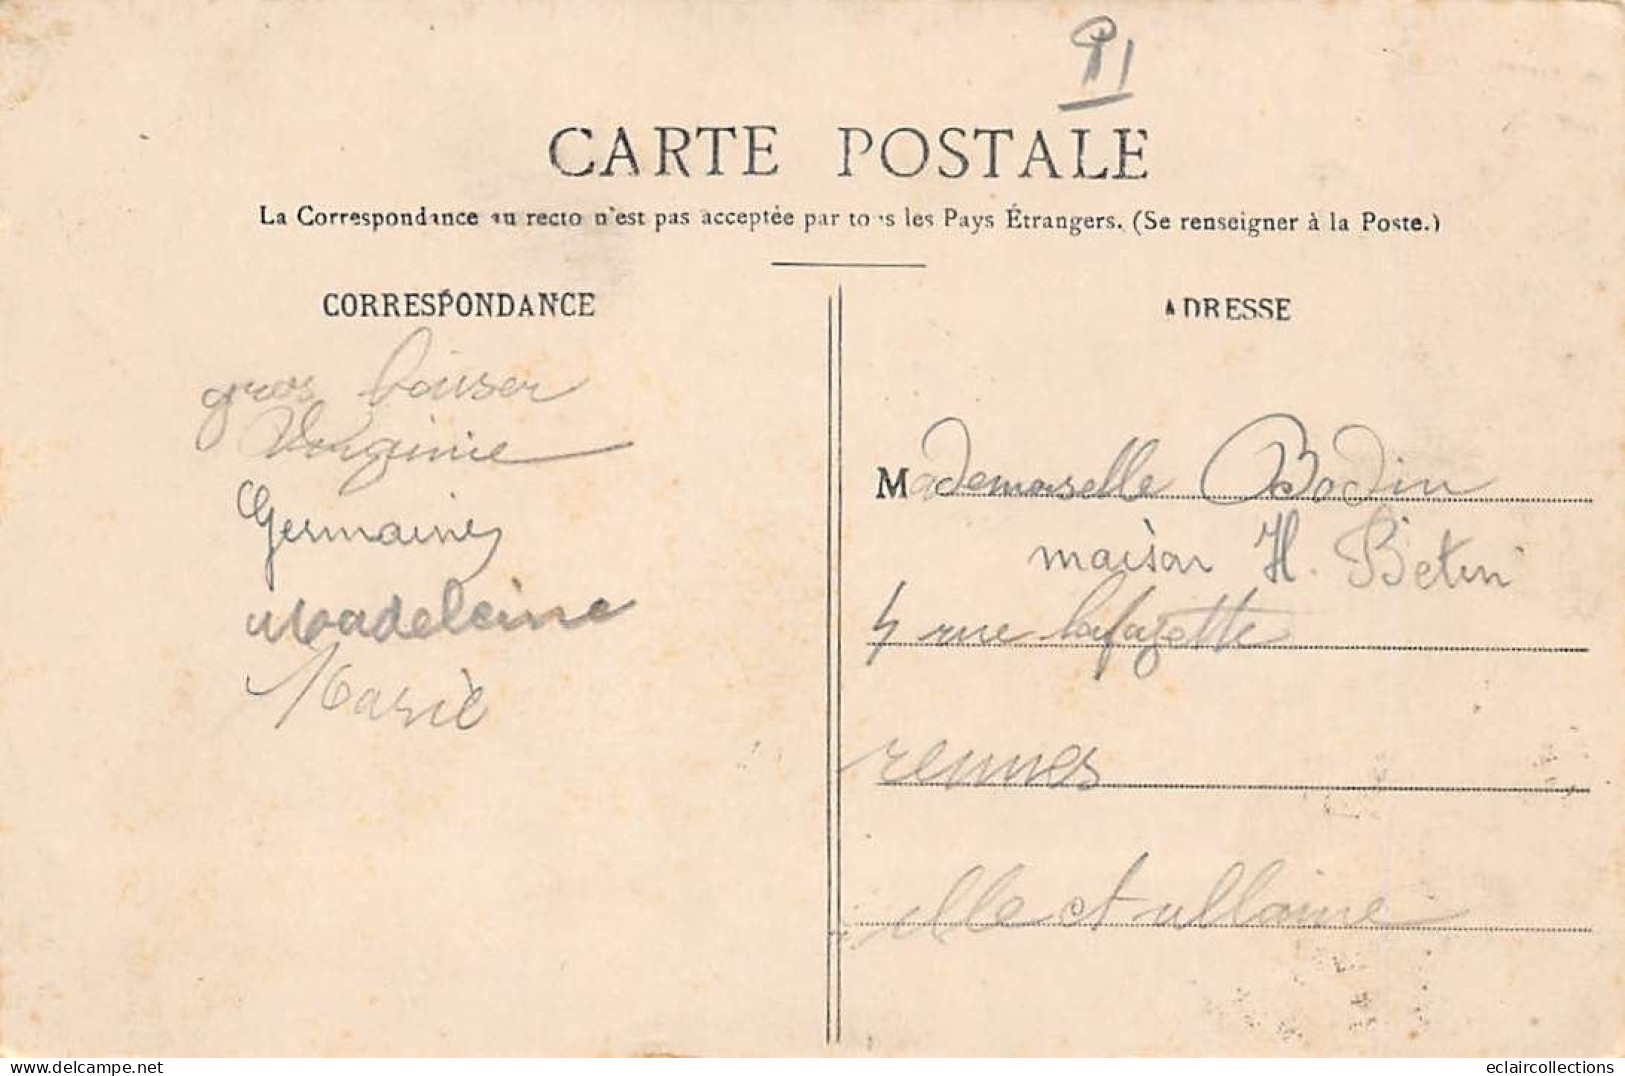 91
CARTE POSTALE
La Correspondance au recto n'est pas acceptée par tous les Pays Étrangers. (Se renseigner à la Poste.)
CORRESPONDANCE
gros baiser
Virginie
Germaine
Madeleine
Marie
ADRESSE
Mademoiselle Bodin
maison H. Betin
4 rue lafayette
rennes
ille et villaine
www.delcampe.net
eclaircollections